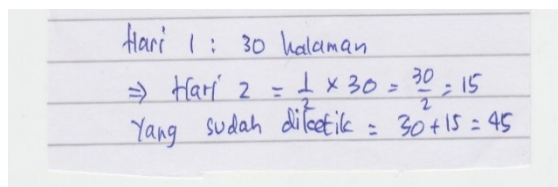 Hari 1 : 30 halaman
⇒ Hari 2 = 1/2 × 30 = 30/2 = 15
Yang sudah diketik = 30 + 15 = 45